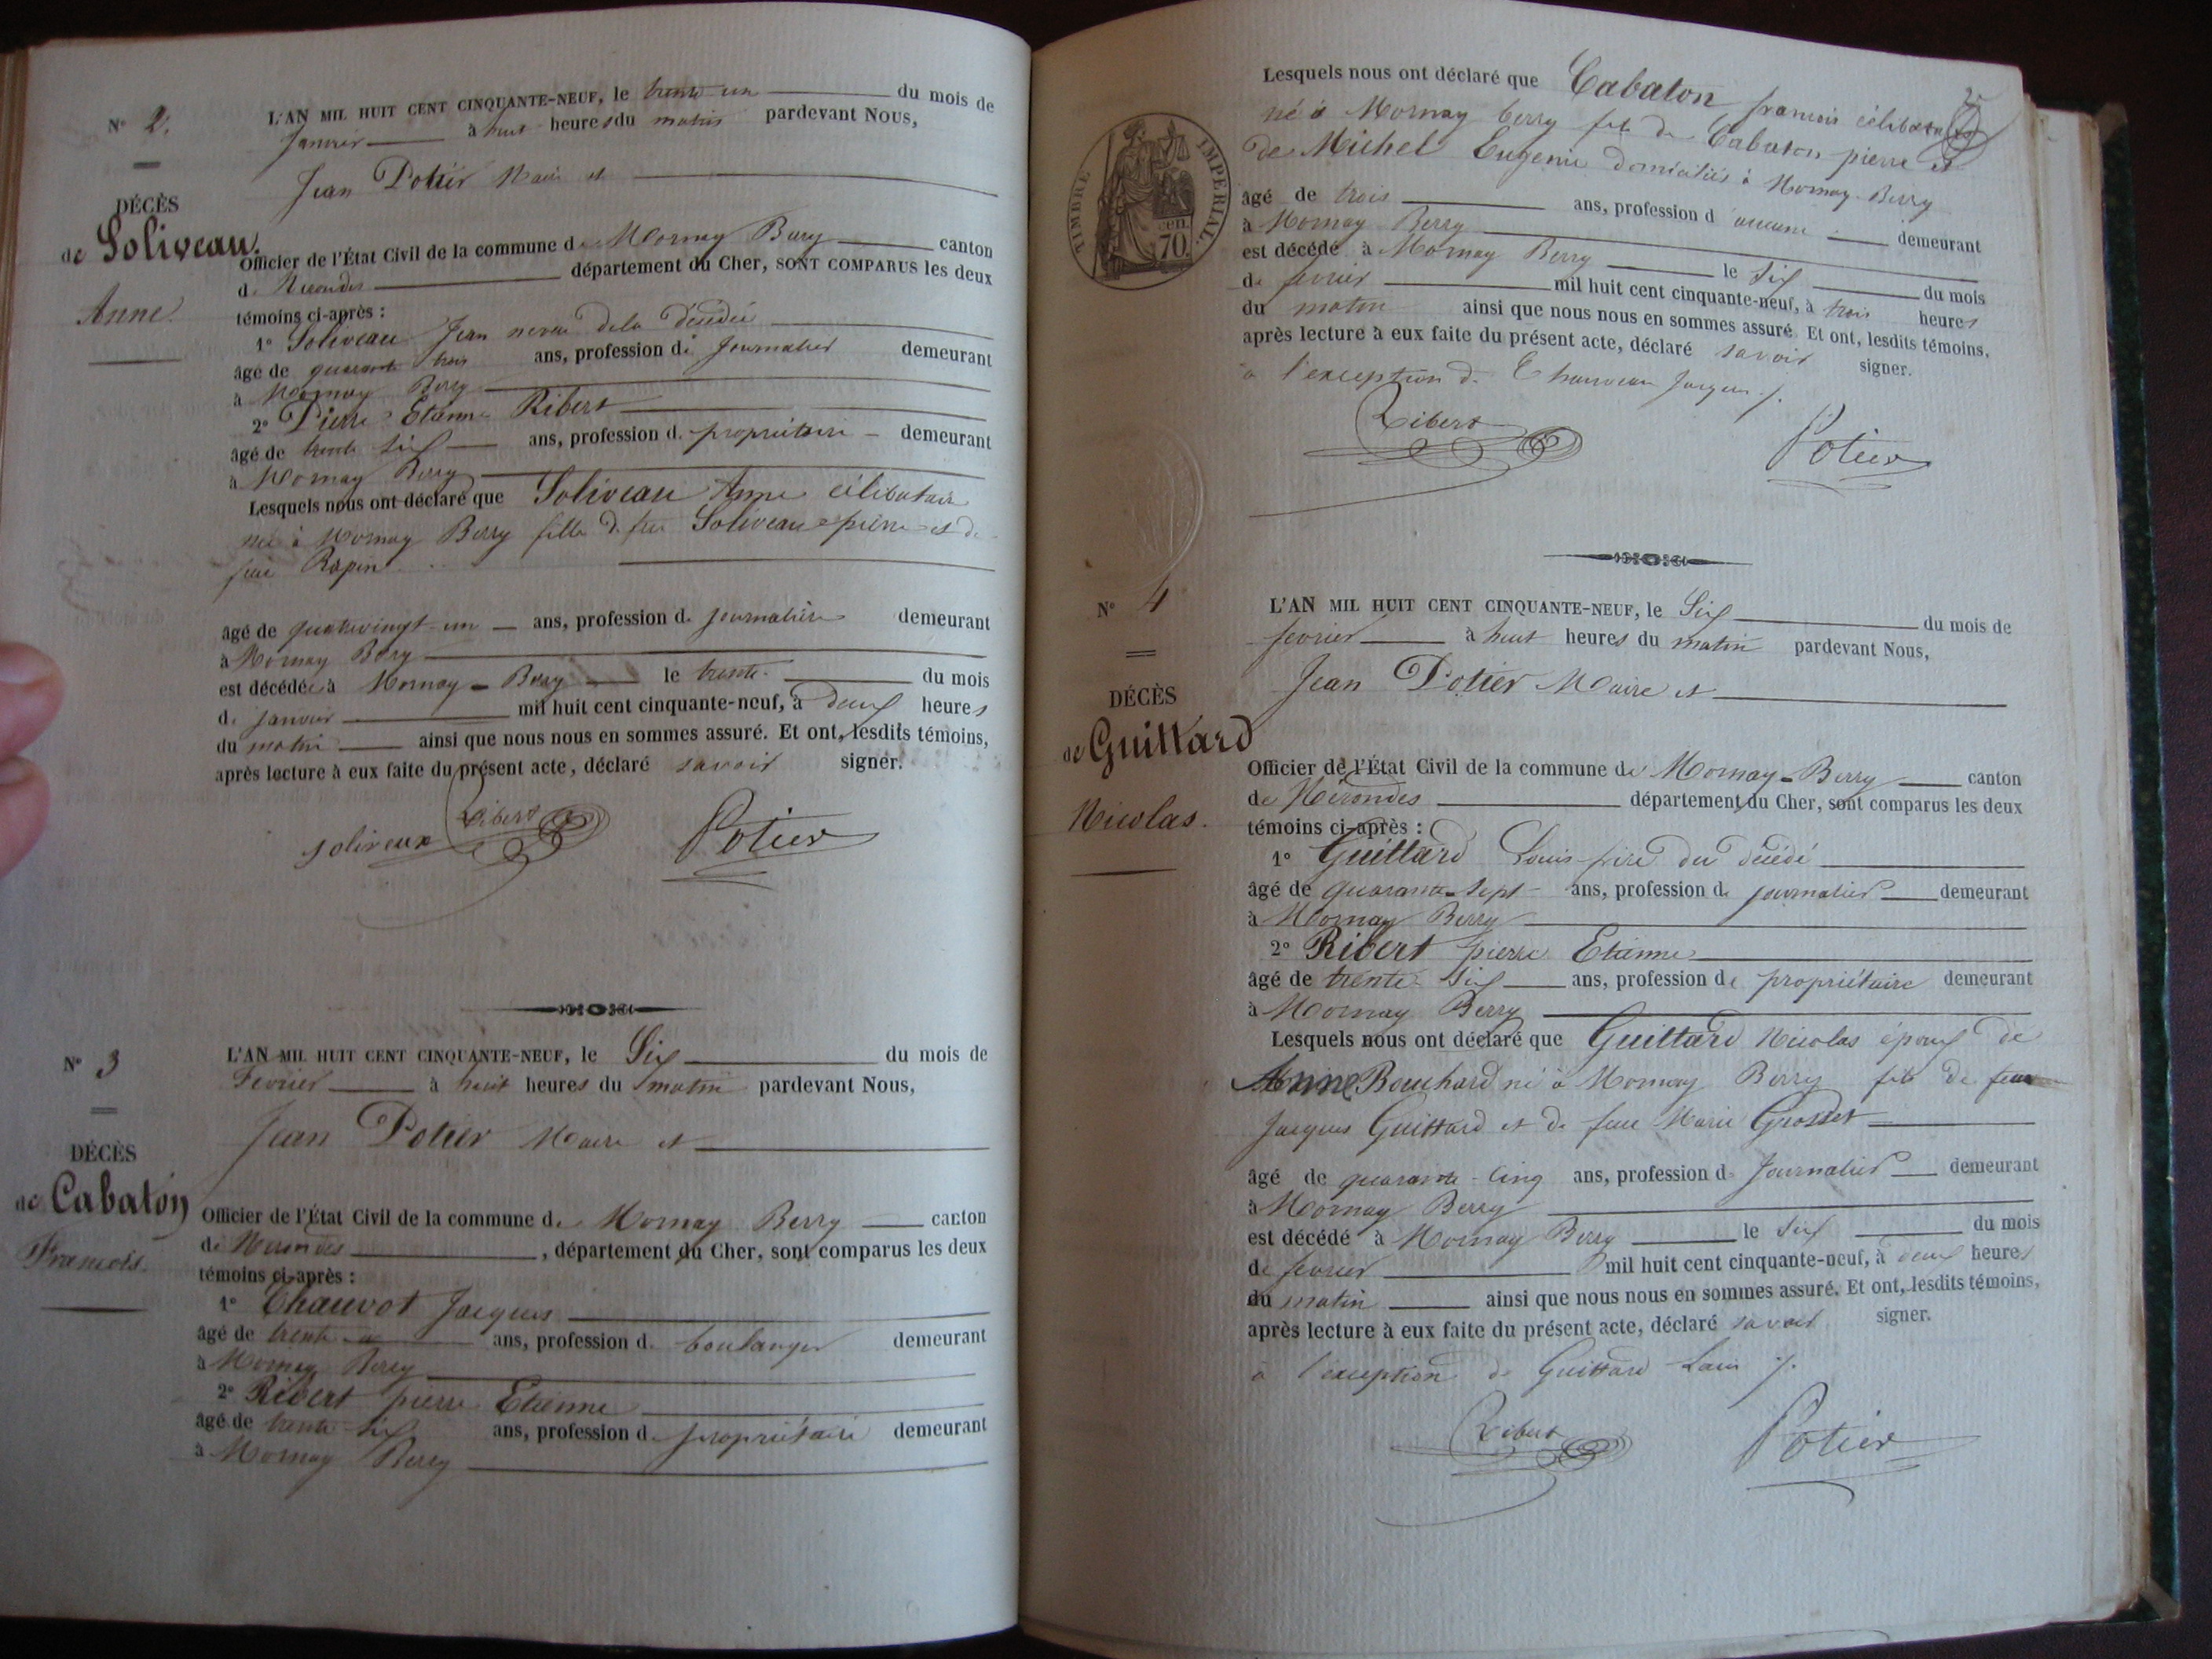 N° 2.
DÉCÈS
de Soliveau
Anne.
L'AN MIL HUIT CENT CINQUANTE-NEUF, le trente un du mois de
Janvier à huit heures du matin pardevant Nous,
Jean Potier Maire et
Officier de l'État Civil de la commune de Mornay Berry canton
de Nérondes département du Cher, SONT COMPARUS les deux
témoins ci-après :
1° Soliveau Jean neveu dela décédée
âgé de quarante trois ans, profession de Journalier demeurant
à Mornay Berry
2° Pierre Etienne Ribert
âgé de trente six ans, profession de propriétaire demeurant
à Mornay Berry
Lesquels nous ont déclaré que Soliveau Anne célibataire
née à Mornay Berry fille de feu Soliveau pierre et de
feue Rapin
âgé de quatrevingt un ans, profession de journalière demeurant
à Mornay Berry
est décédée à Mornay-Berry le trente du mois
de janvier mil huit cent cinquante-neuf, à deux heures
du matin ainsi que nous nous en sommes assuré. Et ont, lesdits témoins,
après lecture à eux faite du présent acte, déclaré savoir signer.
soliveau Ribert Potier
N° 3
DÉCÈS
de Cabaton
François.
L'AN MIL HUIT CENT CINQUANTE-NEUF, le Six du mois de
Fevrier à huit heures du matin pardevant Nous,
Jean Potier Maire et
Officier de l'État Civil de la commune de Mornay Berry canton
de Nérondes , département du Cher, sont comparus les deux
témoins ci-après :
1° Chauvot Jacques
âgé de trente ans, profession de boulanger demeurant
à Mornay Berry
2° Ribert pierre Etienne
âgé de trente six ans, profession de propriétaire demeurant
à Mornay Berry
TIMBRE IMPÉRIAL
cen.
70.
Lesquels nous ont déclaré que Cabaton francois célibataire
né à Mornay berry fils de Cabaton pierre et
de Michel Eugenie domiciliés à Mornay-Berry
âgé de trois ans, profession d aucune demeurant
à Mornay Berry
est décédé à Mornay Berry le six du mois
de fevrier mil huit cent cinquante-neuf, à trois heures
du matin ainsi que nous nous en sommes assuré. Et ont, lesdits témoins,
après lecture à eux faite du présent acte, déclaré savoir signer.
à l'exception de Chauveau Jacques
Ribert Potier
N° 4
DÉCÈS
de Guillard
Nicolas.
L'AN MIL HUIT CENT CINQUANTE-NEUF, le Six du mois de
fevrier à huit heures du matin pardevant Nous,
Jean Potier Maire et
Officier de l'État Civil de la commune de Mornay-Berry canton
de Nérondes département du Cher, sont comparus les deux
témoins ci-après :
1° Guillard Louis frère du décédé
âgé de quarante-sept ans, profession de journalier demeurant
à Mornay Berry
2° Ribert pierre Etienne
âgé de trente-six ans, profession de propriétaire demeurant
à Mornay Berry
Lesquels nous ont déclaré que Guillard Nicolas époux de
Anne Bouchard né à Mornay Berry fils de feu
Jacques Guillard et de feue Marie Grosset
âgé de quarante-cinq ans, profession de Journalier demeurant
à Mornay Berry
est décédé à Mornay Berry le six du mois
de fevrier mil huit cent cinquante-neuf, à deux heures
du matin ainsi que nous nous en sommes assuré. Et ont, lesdits témoins,
après lecture à eux faite du présent acte, déclaré savoir signer.
à l'exception de Guillard Louis
Ribert Potier